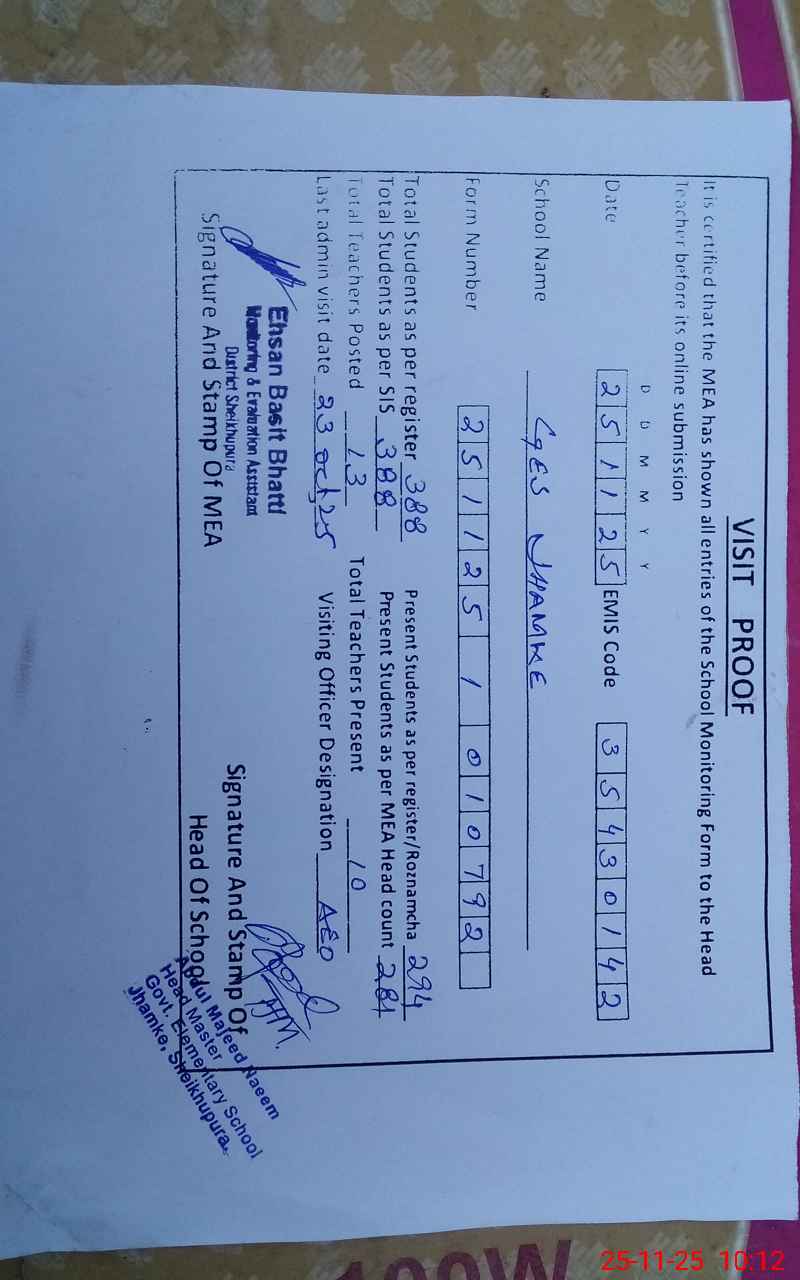 VISIT PROOF
It is certified that the MEA has shown all entries of the School Monitoring Form to the Head
Teacher before its online submission
D D M M Y Y
Date 2 5 1 1 2 5 EMIS Code 3 5 4 3 0 1 4 2
School Name GES JHAMKE
Form Number 2 5 1 1 2 5 1 0 1 0 7 9 2
Total Students as per register 388 Present Students as per register/Roznamcha 294
Total Students as per SIS 388 Present Students as per MEA Head count 281
Total Teachers Posted 13 Total Teachers Present 10
Last admin visit date 23 Oct, 25 Visiting Officer Designation AEO
Ehsan Basit Bhatti
Monitoring & Evaluation Assistant
District Sheikhupura
Signature And Stamp Of MEA
HM.
Signature And Stamp Of
Head Of School
Abdul Majeed Naeem
Head Master
Govt. Elementary School
Jhamke, Sheikhupura.
100W
25-11-25 10:12